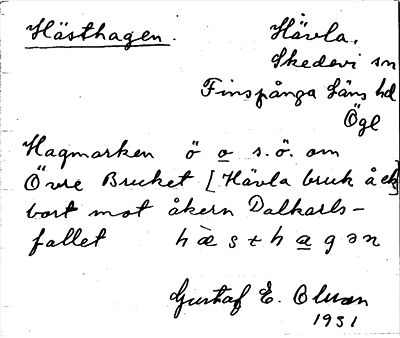 Hästhagen.
Hävla,
Skedevi sn
Finspånga läns hd
Ögl
Hagmarken ö o s.ö. om
Övre Bruket [Hävla bruk å ek]
bort mot åkern Dalkarls-
fallet hæ̀sthagən
Gustaf E. Olsson
1931